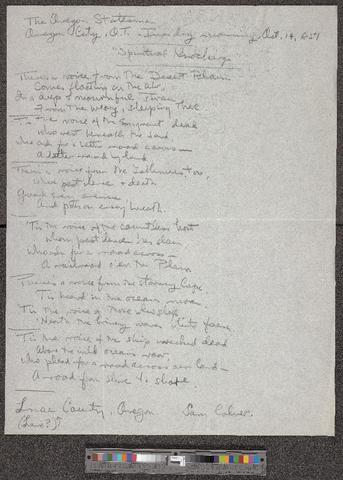 The Oregon Statesman
Oregon City, O.T. - Tuesday morning, Oct. 14, 1851
"Spiritual Knockings
There's a voice from the Desert Plain
Comes floating on the air,
In a dirge of mournful
From the weary, sleeping there
'Tis the voice of the Emigrant dead
who rest beneath the sand
who ask for a better road across —
A better road by land
There's a voice from the Isthmus, too,
Where pestilence & death
Guard every avenue
And poison every breath.
'Tis the voice of the countless host
Whom pestilence has slain
Who ask for a road across —
A railroad o'er the Plain
There's a voice from the stormy Cape
'Tis heard in the oceans roar
'Tis the voice of those who sleep
'Neath the briney waves white foam.
'Tis the voice of the ship wrecked dead
Above the wild oceans roar
who plead for a road across our land —
A road from shore to shore.
County, Oregon. Sam
(Lane?)